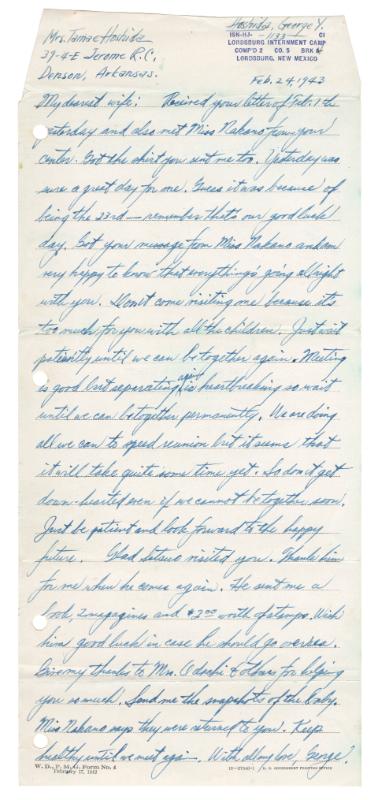 Hoshida, George Y.
ISN-HJ- 1133 CI
LORDSBURG INTERNMENT CAMP
COMP'D 2 CO. 5 BRK
LORDSBURG, NEW MEXICO
Mrs. Tamae Hoshida
39-4-E Jerome R.C.,
Denson, Arkansas.
Feb. 24, 1943
My dearest wife: Received your letter of Feb. 17 the
yesterday and also met Miss Nakano from your
center. Got the shirt you sent me too. Yesterday was
sure a great day for me. Guess it was because of
being the 23rd — remember that's our good luck
day. Got your message from Miss Nakano and am
very happy to know that everything's going allright
with you. Don't come visiting me because it's
too much for you with all the children. Just wait
patiently until we can be together again. Meeting
is good but separating again is heartbreaking so wait
until we can be together permanently. We are doing
all we can to speed reunion but it seems that
it will take quite some time yet. So don't get
down-hearted even if we cannot be together soon.
Just be patient and look forward to the happy
future. Glad Tatsuo visited you. Thank him
for me when he comes again. He sent me a
book, 2 magazines and $2.00 worth of stamps. Wish
him good luck in case he should go oversea.
Give my thanks to Mrs. Adachi & others for helping
you so much. Send me the snapshots of the baby.
Miss Nakano says they were returned to you. Keep
healthy until we meet again. With all my love, George Y.
W. D., P. M. G. Form No. 4
February 17, 1942
U. S. GOVERNMENT PRINTING OFFICE